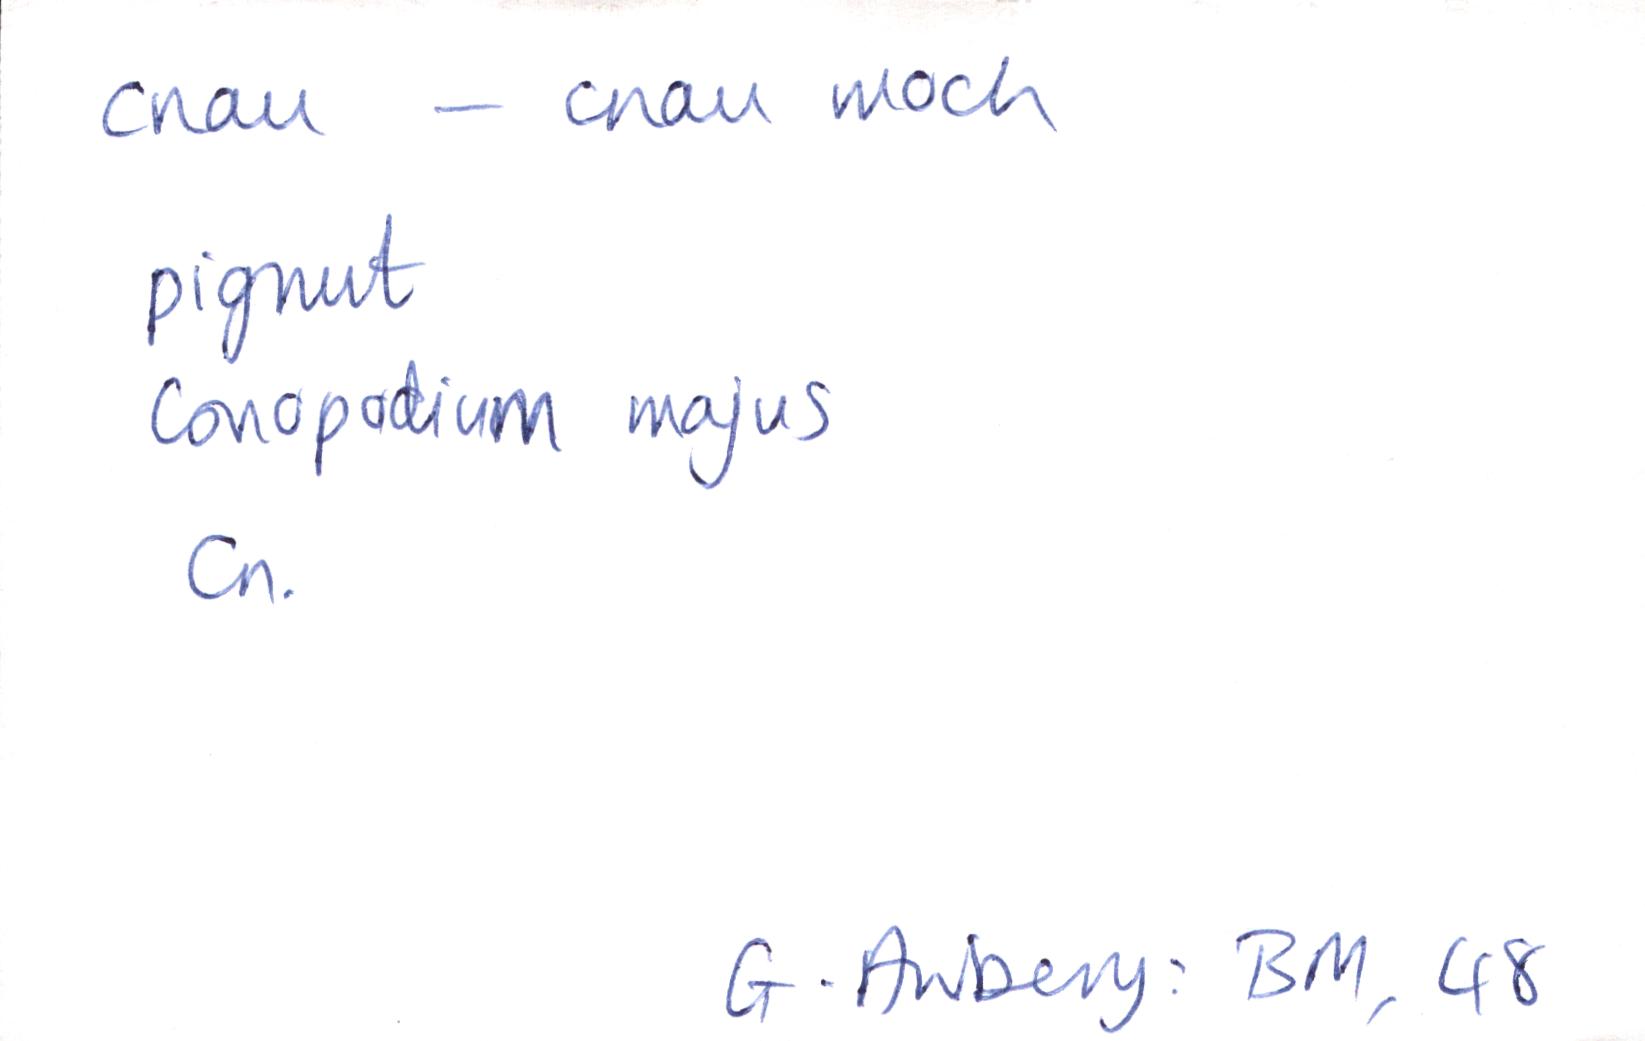 cnau — cnau moch
pignut
Conopodium majus
Cn.
G. Awbery: BM, 48